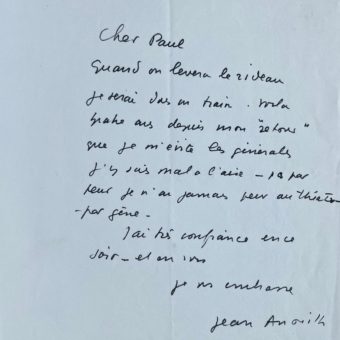 Cher Paul
Quand on levera le rideau
je serai dans un train. Voila
quatre ans depuis mon "retour"
que je m'évite les générales
J'y suis mal à l'aise - pas par
peur je n'ai jamais peur au théâtre
- par gêne -
J'ai très confiance en ce
soir - et en vous
je vous embrasse
Jean Anouilh